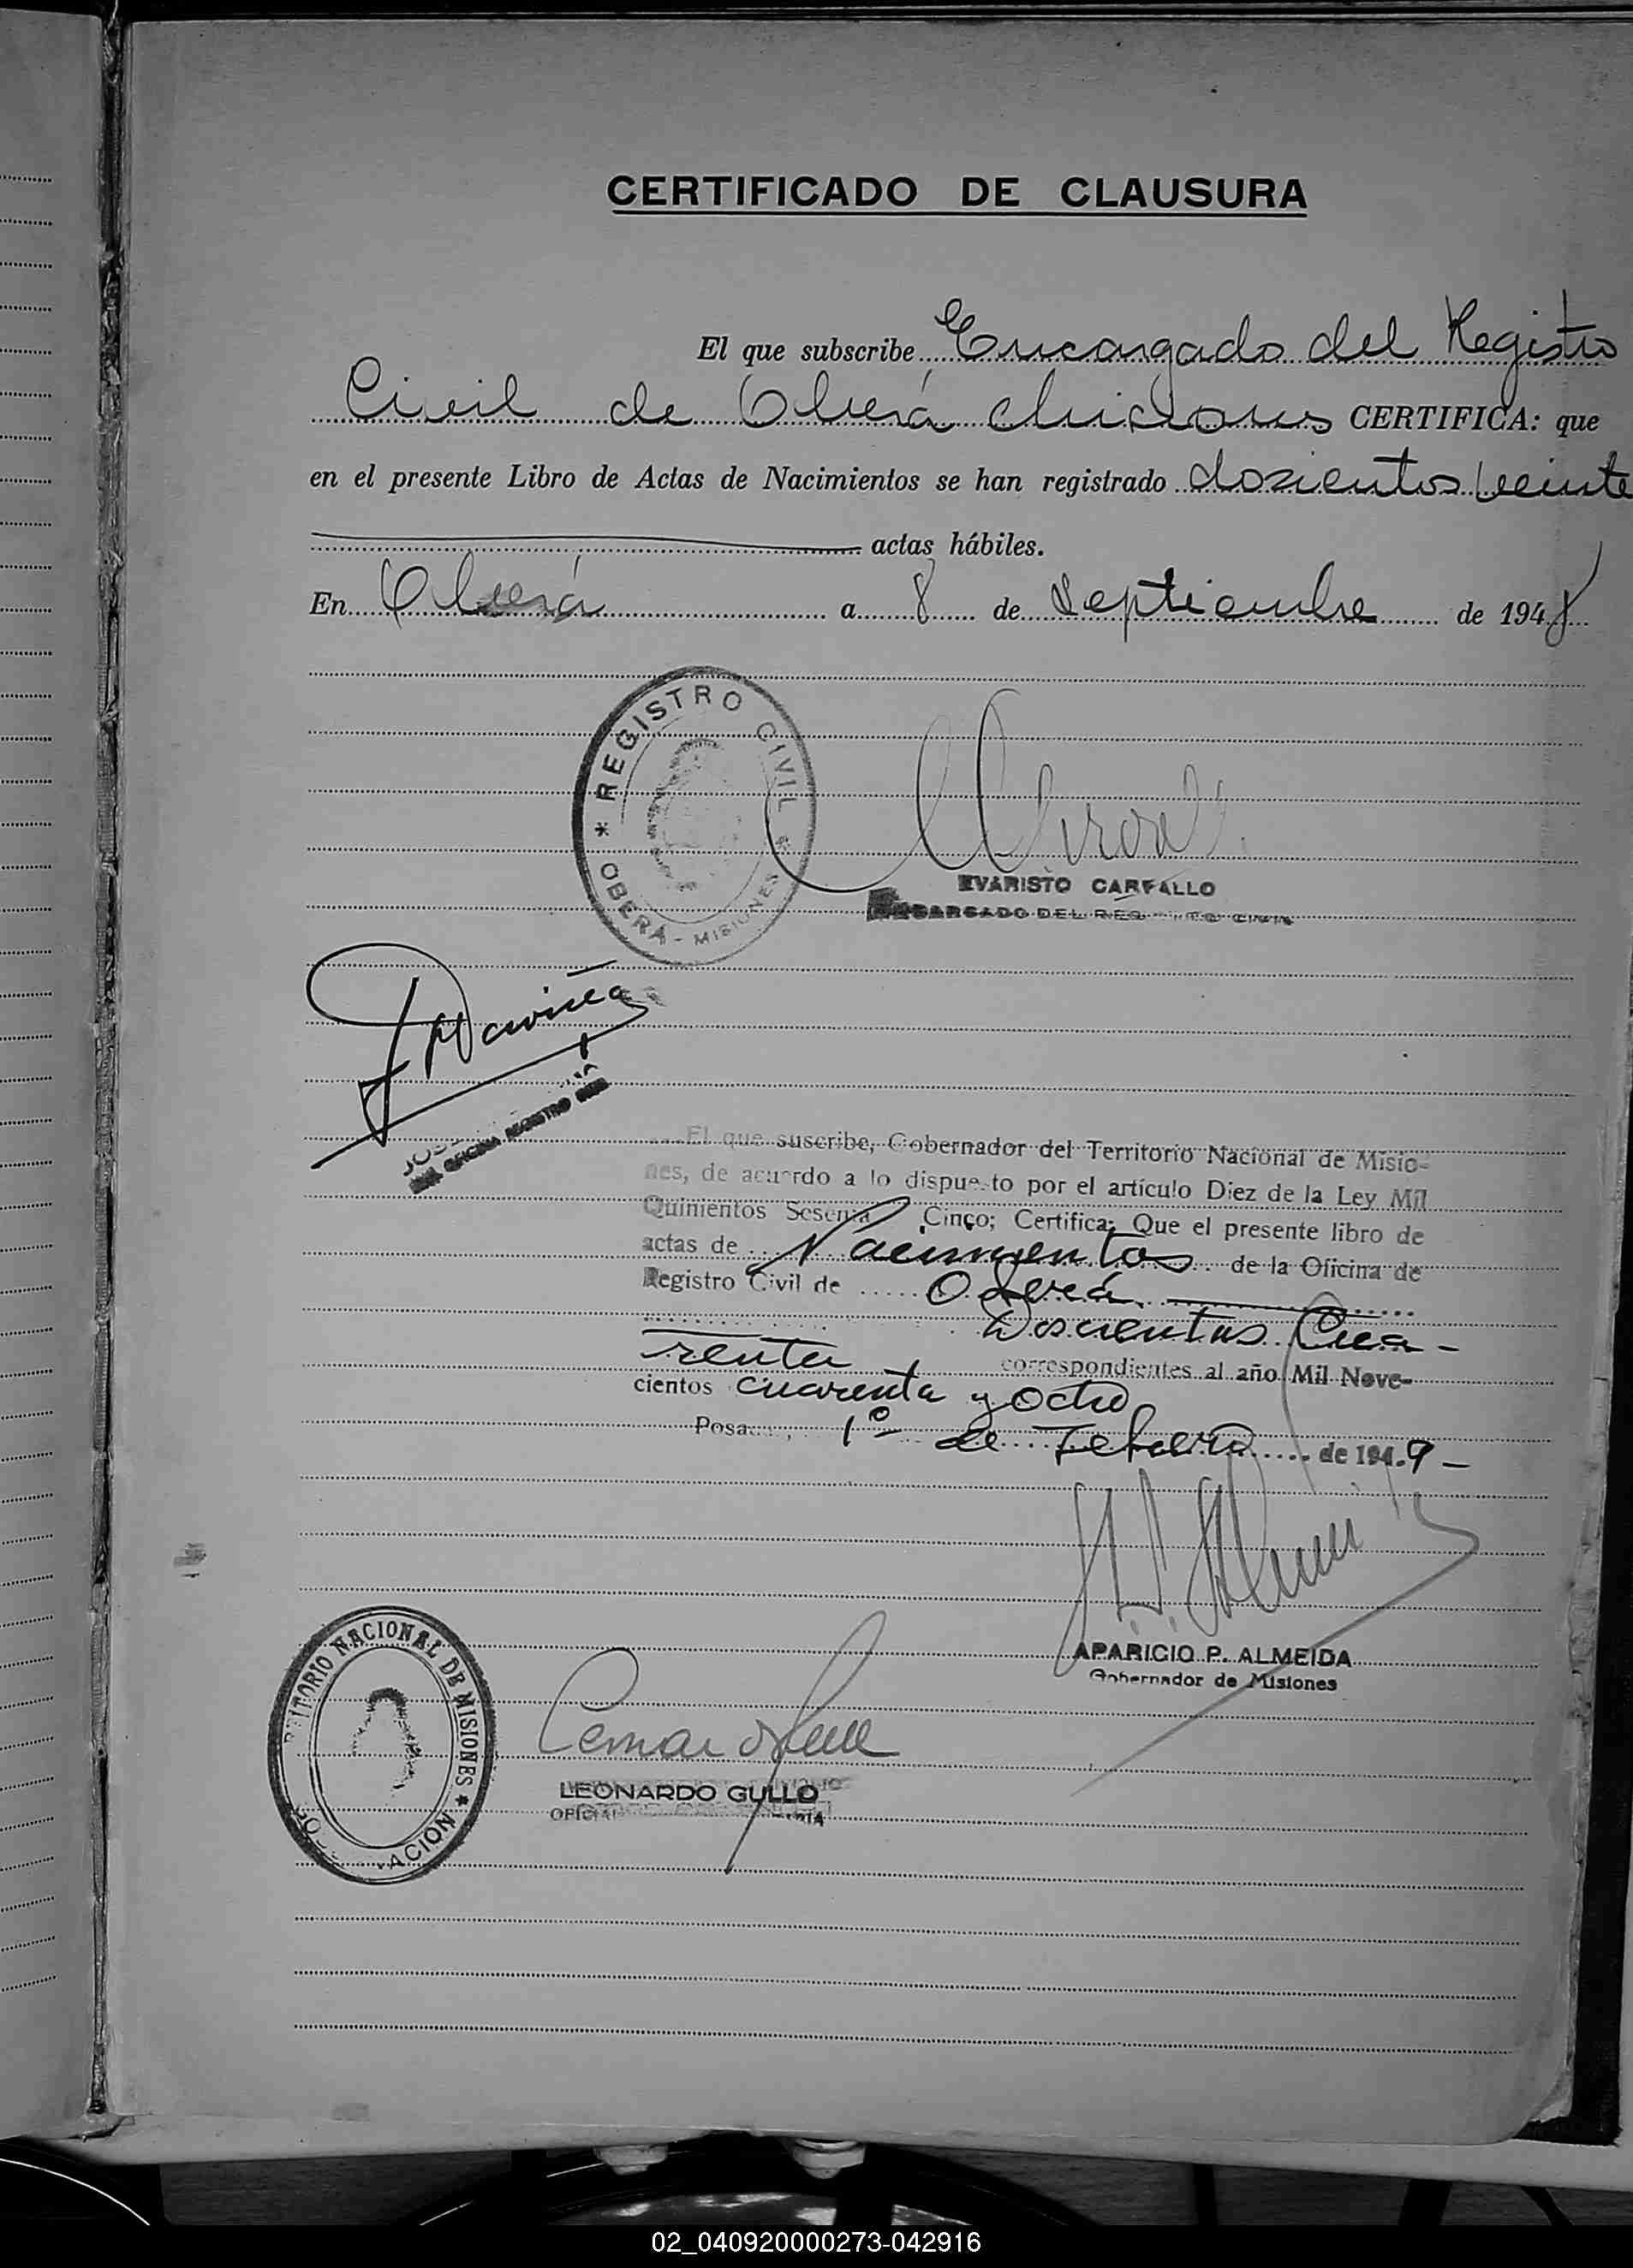 CERTIFICADO DE CLAUSURA
El que subscribe Encargado del Registro
Civil de Oberá Misiones CERTIFICA: que
en el presente Libro de Actas de Nacimientos se han registrado doscientos veinte
actas hábiles.
En Oberá a 8 de Septiembre de 1948
REGISTRO CIVIL
OBERÁ - MISIONES
EVARISTO CARFALLO
ENCARGADO DEL REGISTRO CIVIL
OFICINA REGISTRO
El que suscribe, Gobernador del Territorio Nacional de Misio-
nes, de acuerdo a lo dispuesto por el artículo Diez de la Ley Mil
Quinientos Sesenta Cinco; Certifica: Que el presente libro de
actas de Nacimientos de la Oficina de
Registro Civil de Oberá
Doscientos Cua-
renta correspondientes al año Mil Nove-
cientos cuarenta y octio
Posadas, 1º de Febrero de 1949-
APARICIO P. ALMEIDA
Gobernador de Misiones
TERRITORIO NACIONAL DE MISIONES
GOBERNACION
LEONARDO GULLO
OFICIAL
02_040920000273-042916